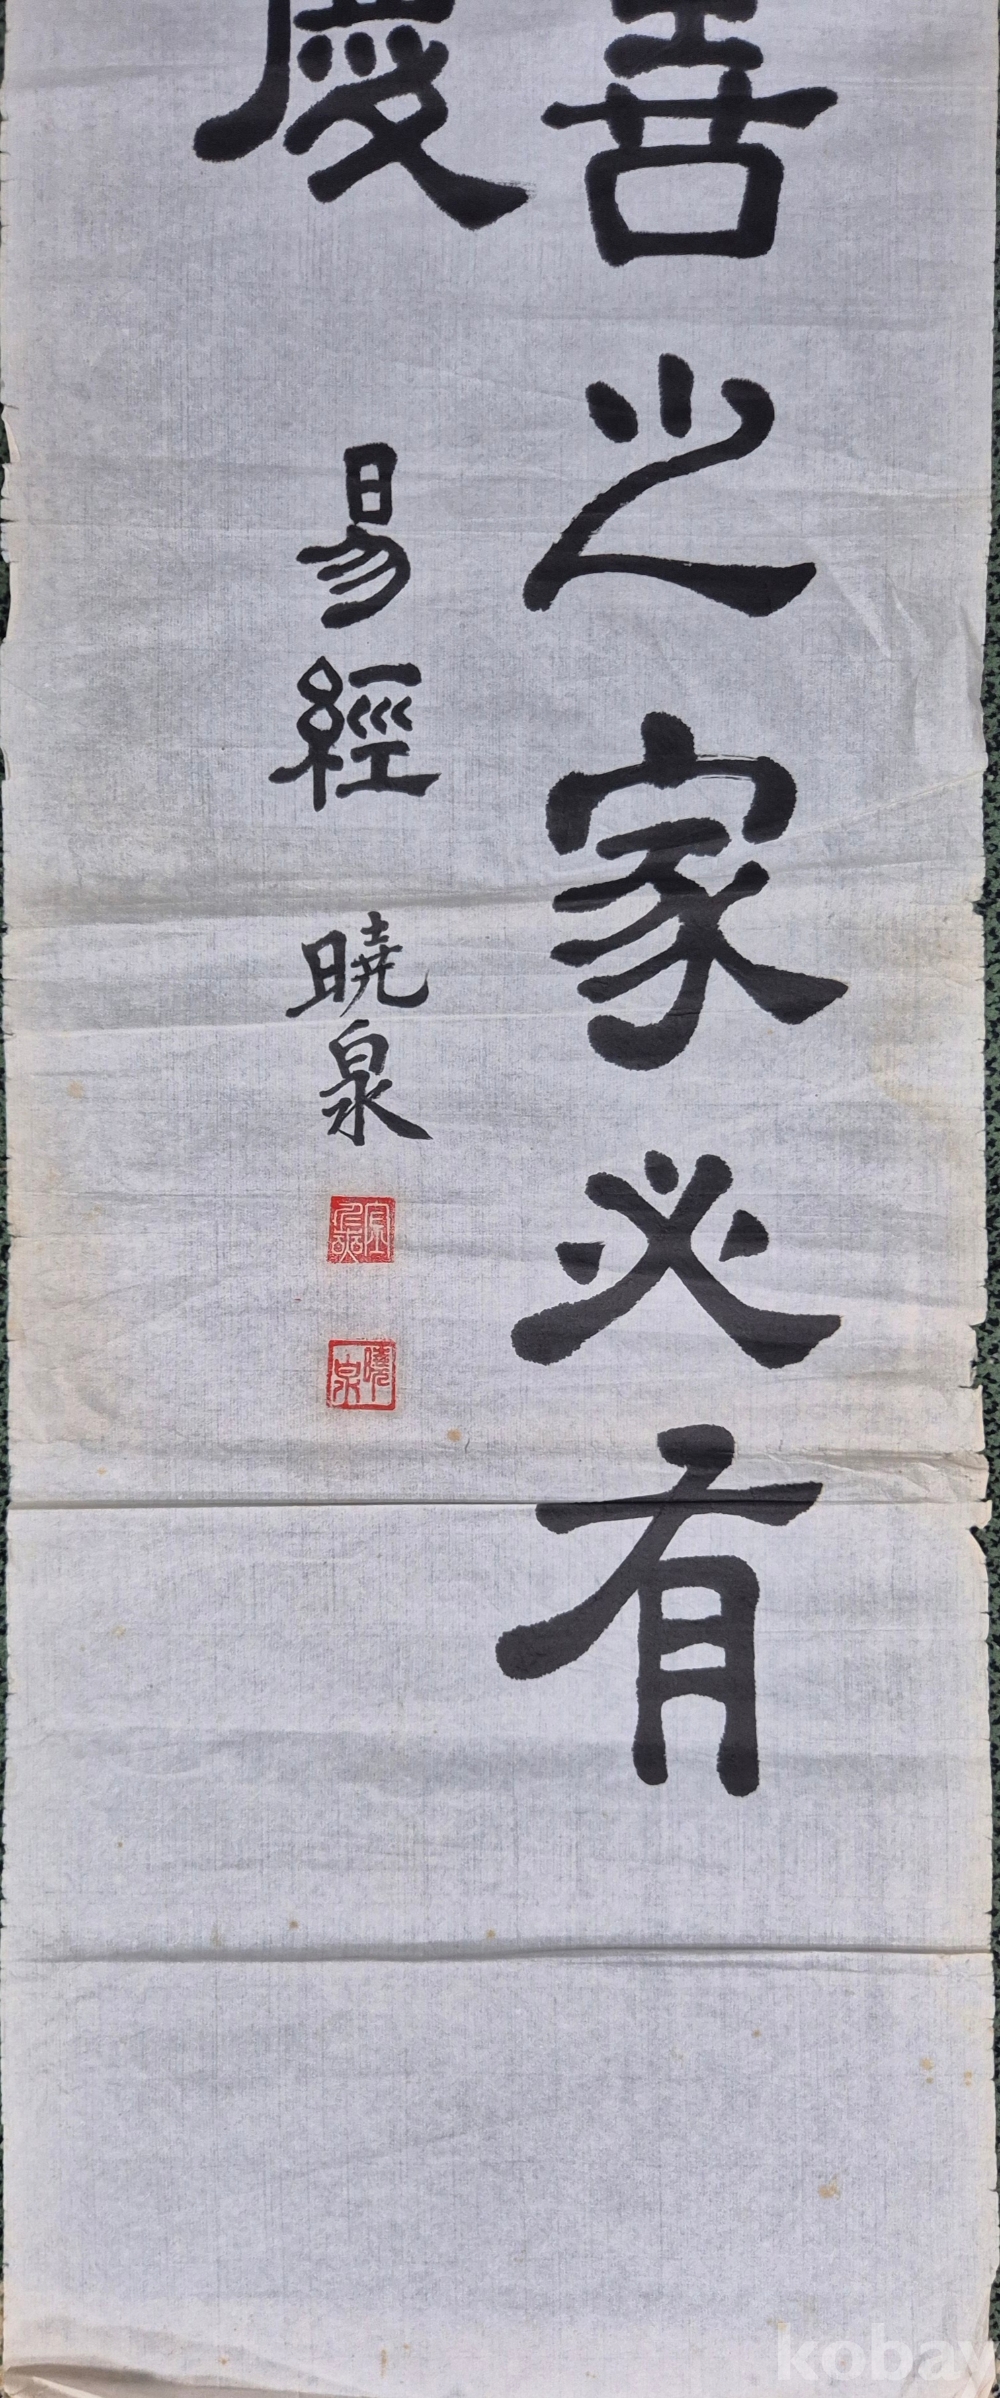 善之家必有
慶
易經
曉泉
曉泉
kobay